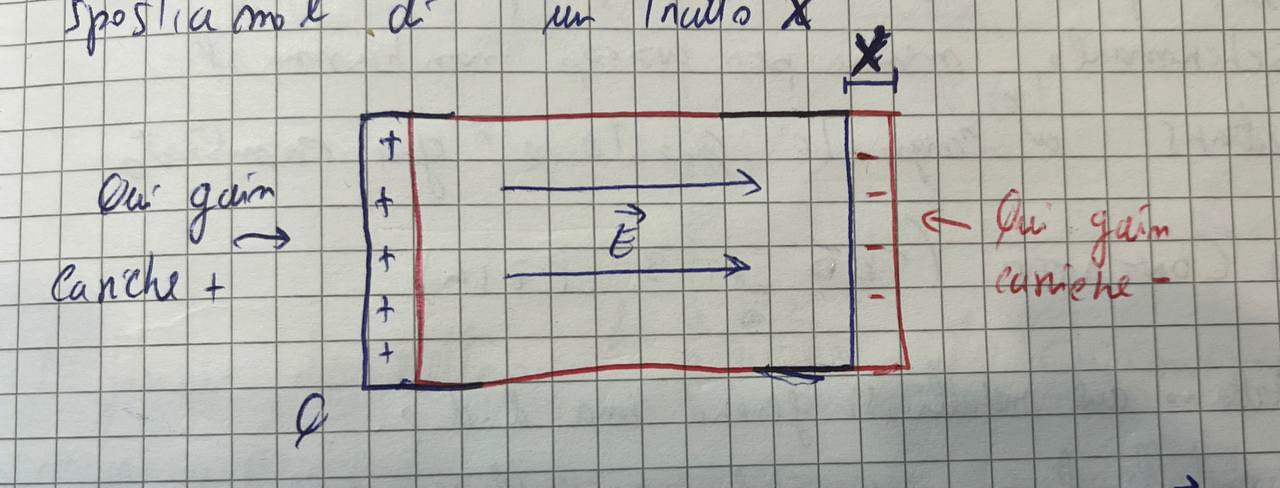 spostiamo le di un tratto x
x
+ -
+ -
E
+ -
+ -
+
Qui gain
cariche +
Qui gain
cariche -
Q